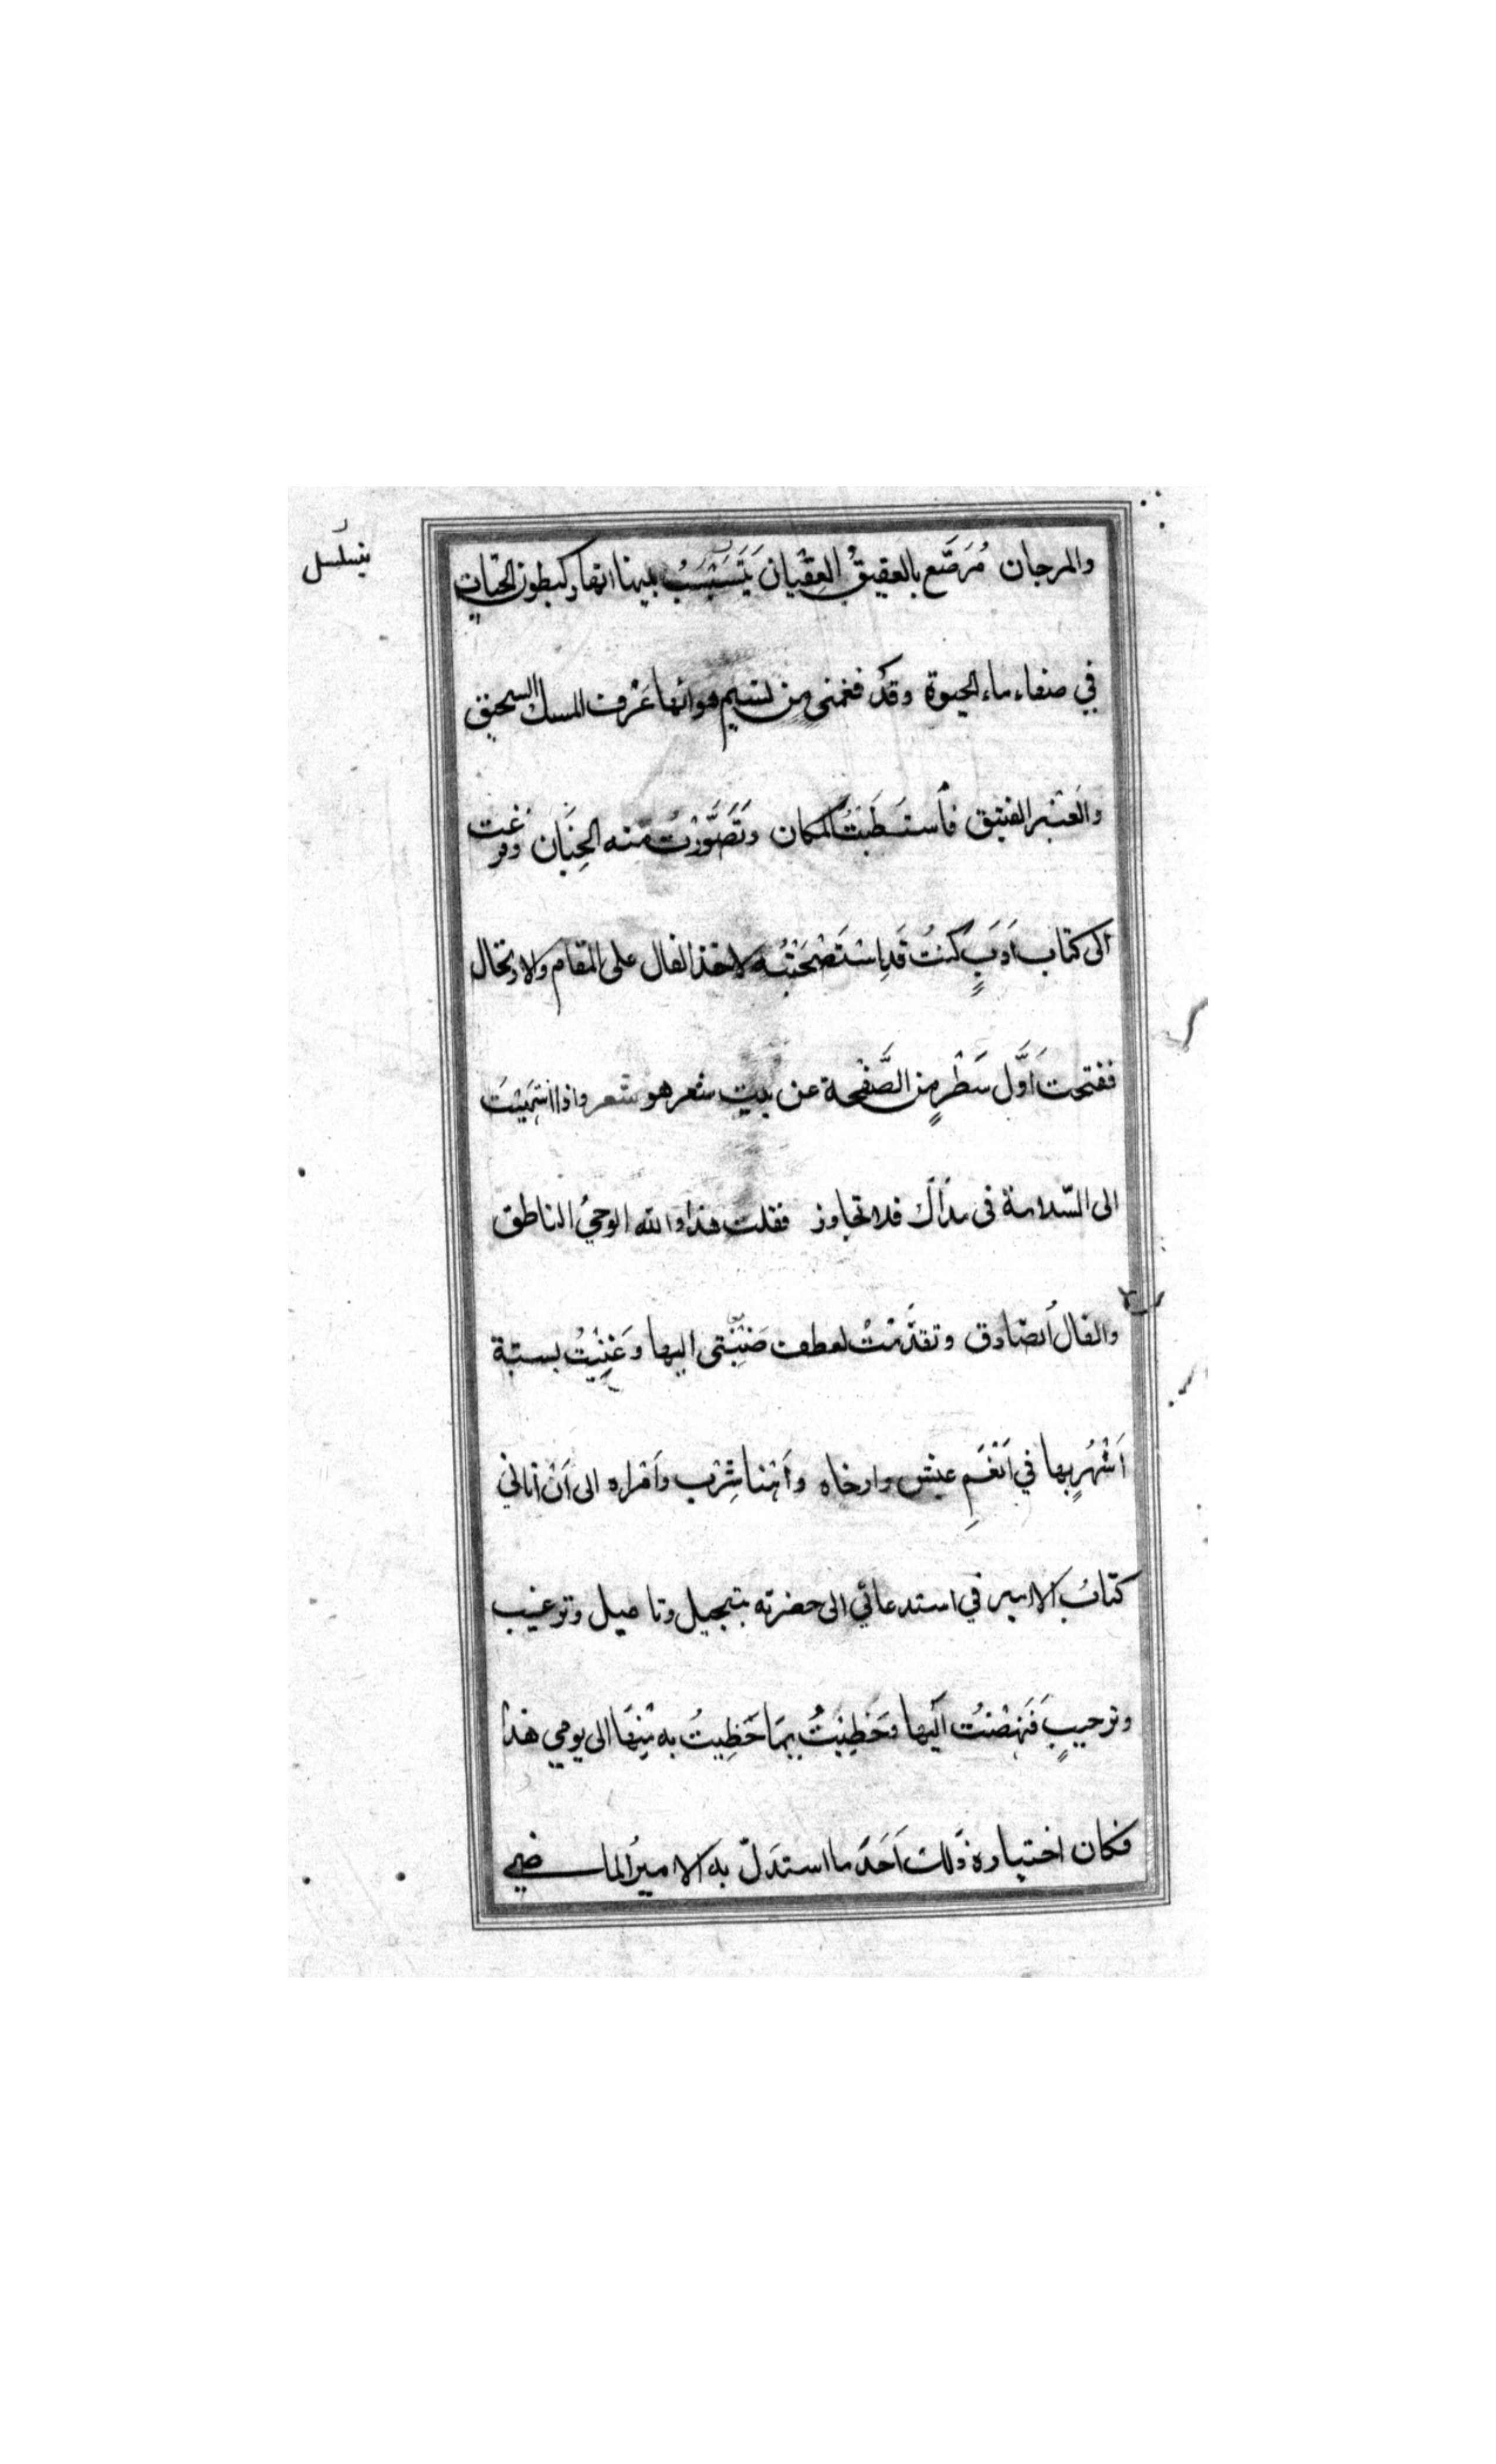 والمرجان مُرَصَّع بالعقيقُ العِقْيَان يَتَسَبْسَبُ بينها انهار كبطون الحيّاتِ
يتسلسل
في صفاء ماء الحيوة وقد فغمنى من نسيم هوائها عَرْف المسك السحيق
والعَنْبر الفتيق فأستَطَبْتُ المكان وتَصَوَّرْتُ منه الجِنَان وفزعت
الى كتاب اَدَبٍ كنتُ قَدِ اسْتَصْحَبْتُه لاخذ الفال على المقام والارتحال
ففتحت اَوَّل سَطْرٍ من الصَّفْحة عن بيت شعر هو شعر واذا انتهَيْتَ
الى السّلامة في مَدَاكَ فلا تجاوز فقلت هذا والله الوحيُ الناطق
والفالُ الصّادق وتقدّمْتُ لعطف ضبنتى اليها وغَنِيْتُ بستة
اَشْهُرٍ بها في اَنْعَمِ عيش وارخاه واَهْنا شِرْب واَمْراه الى اَنْ اتاني
كتابُ الامير في استدعائي الى حضرته بتبجيل وتاميل وترغيب
وترحيبٍ فَنهَضْتُ اليها وحَظِيْتُ بِمَا حَظِيتُ به مِنهَا الى يومي هذا
فكان اختياره ذلك اَحَدَ ما استدَلّ به الاميرُ الماضي